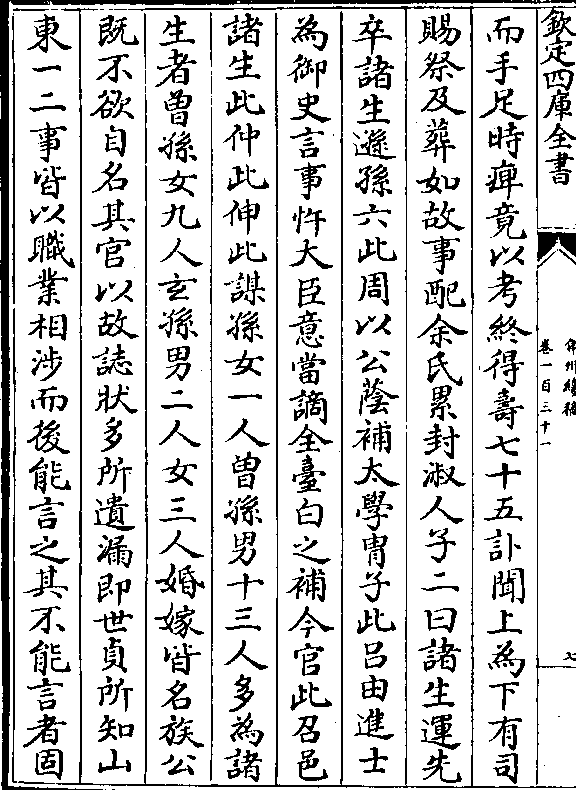 欽定四庫全書
弇州續稿
卷一百三十一
七
而手足時痺竟以考終得壽七十五訃聞上為下有司
賜祭及葬如故事配余氏累封淑人子二曰諸生運先
卒諸生遜孫六此周以公蔭補太學冑子此呂由進士
為御史言事忤大臣意當謫全臺白之補今官此召邑
諸生此仲此伸此謀孫女一人曾孫男十三人多為諸
生者曾孫女九人玄孫男二人女三人婚嫁皆名族公
既不欲自名其官以故誌狀多所遺漏即世貞所知山
東一二事皆以職業相涉而後能言之其不能言者固